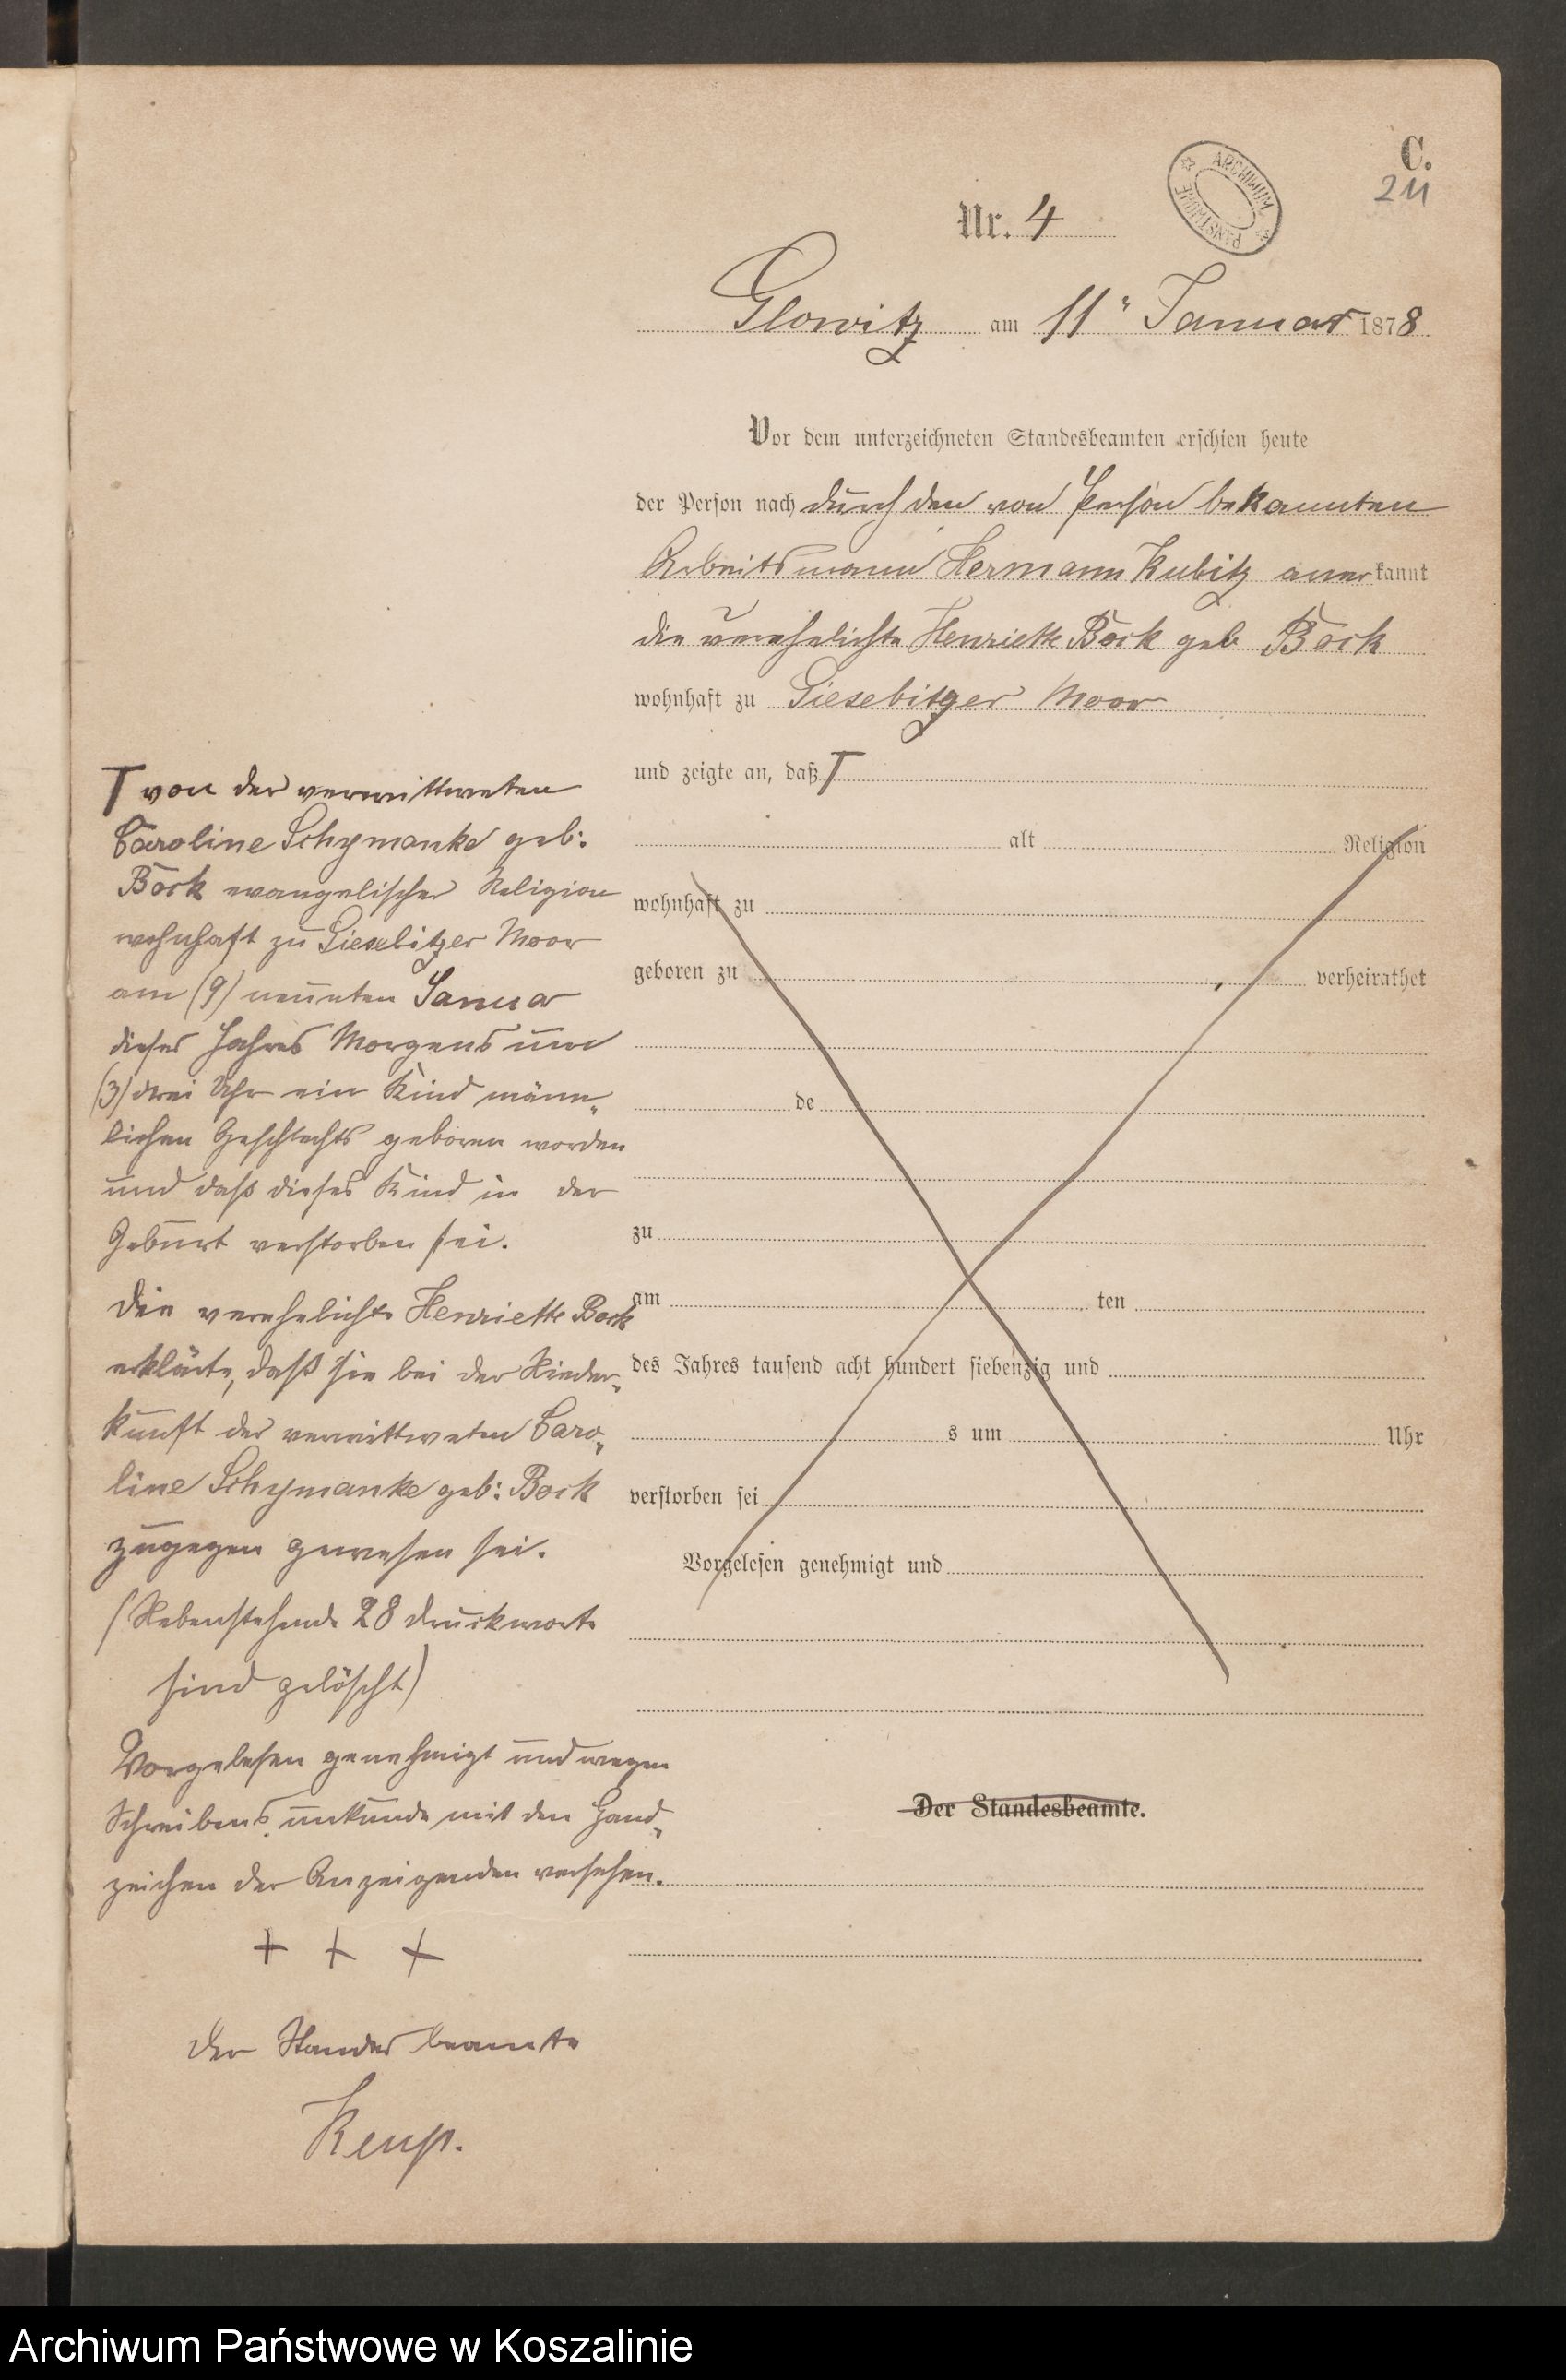 C.
211
ARCHIWUM PAŃSTWOWE
Nr. 4
Glowitz am 11" Januar 1878
Vor dem unterzeichneten Standesbeamten erschien heute
der Person nach durch den von Person bekannten
Arbeitsmann Hermann Kubitz anerkannt
die verehelichte Henriette Bock geb Bock
wohnhaft zu Giesebitzer Moor
und zeigte an, daß T
alt Religion
wohnhaft zu
geboren zu verheirathet
de
zu
am ten
des Jahres tausend acht hundert siebenzig und
s um Uhr
verstorben sei
Vorgelesen genehmigt und
Der Standesbeamte.
T von der verwittweten
Caroline Schymanke geb:
Bock evangelischer Religion
wohnhaft zu Giesebitzer Moor
am (9) neunten Janua
dieses Jahres Morgens um
(3) drei Uhr ein Kind männ„
lichen Geschlechts geboren worden
und daß dieses Kind in der
Geburt verstorben sei.
Die verehelichte Henriette Bock
erklärte, daß sie bei der Nieder„
kunft der verwittweten Caro„
line Schymanke geb: Bock
zugegen gewesen sei.
(Nebenstehende 28 Druckworte
sind gelöscht)
Vorgelesen genehmigt und wegen
Schreibens unkunde mit den Hand„
zeichen der Anzeigenden versehen.
+ + +
Der Standesbeamte
Archiwum Państwowe w Koszalinie